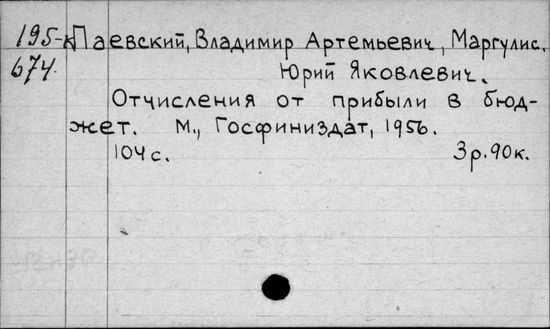 195-к Паевский, Владимир Артемьевич, Маргулис.
674. Юрий Яковлевич.
Отчисления от прибыли в бюд-
жет. М., Госфиниздат, 1956.
104 с. 3р.90к.